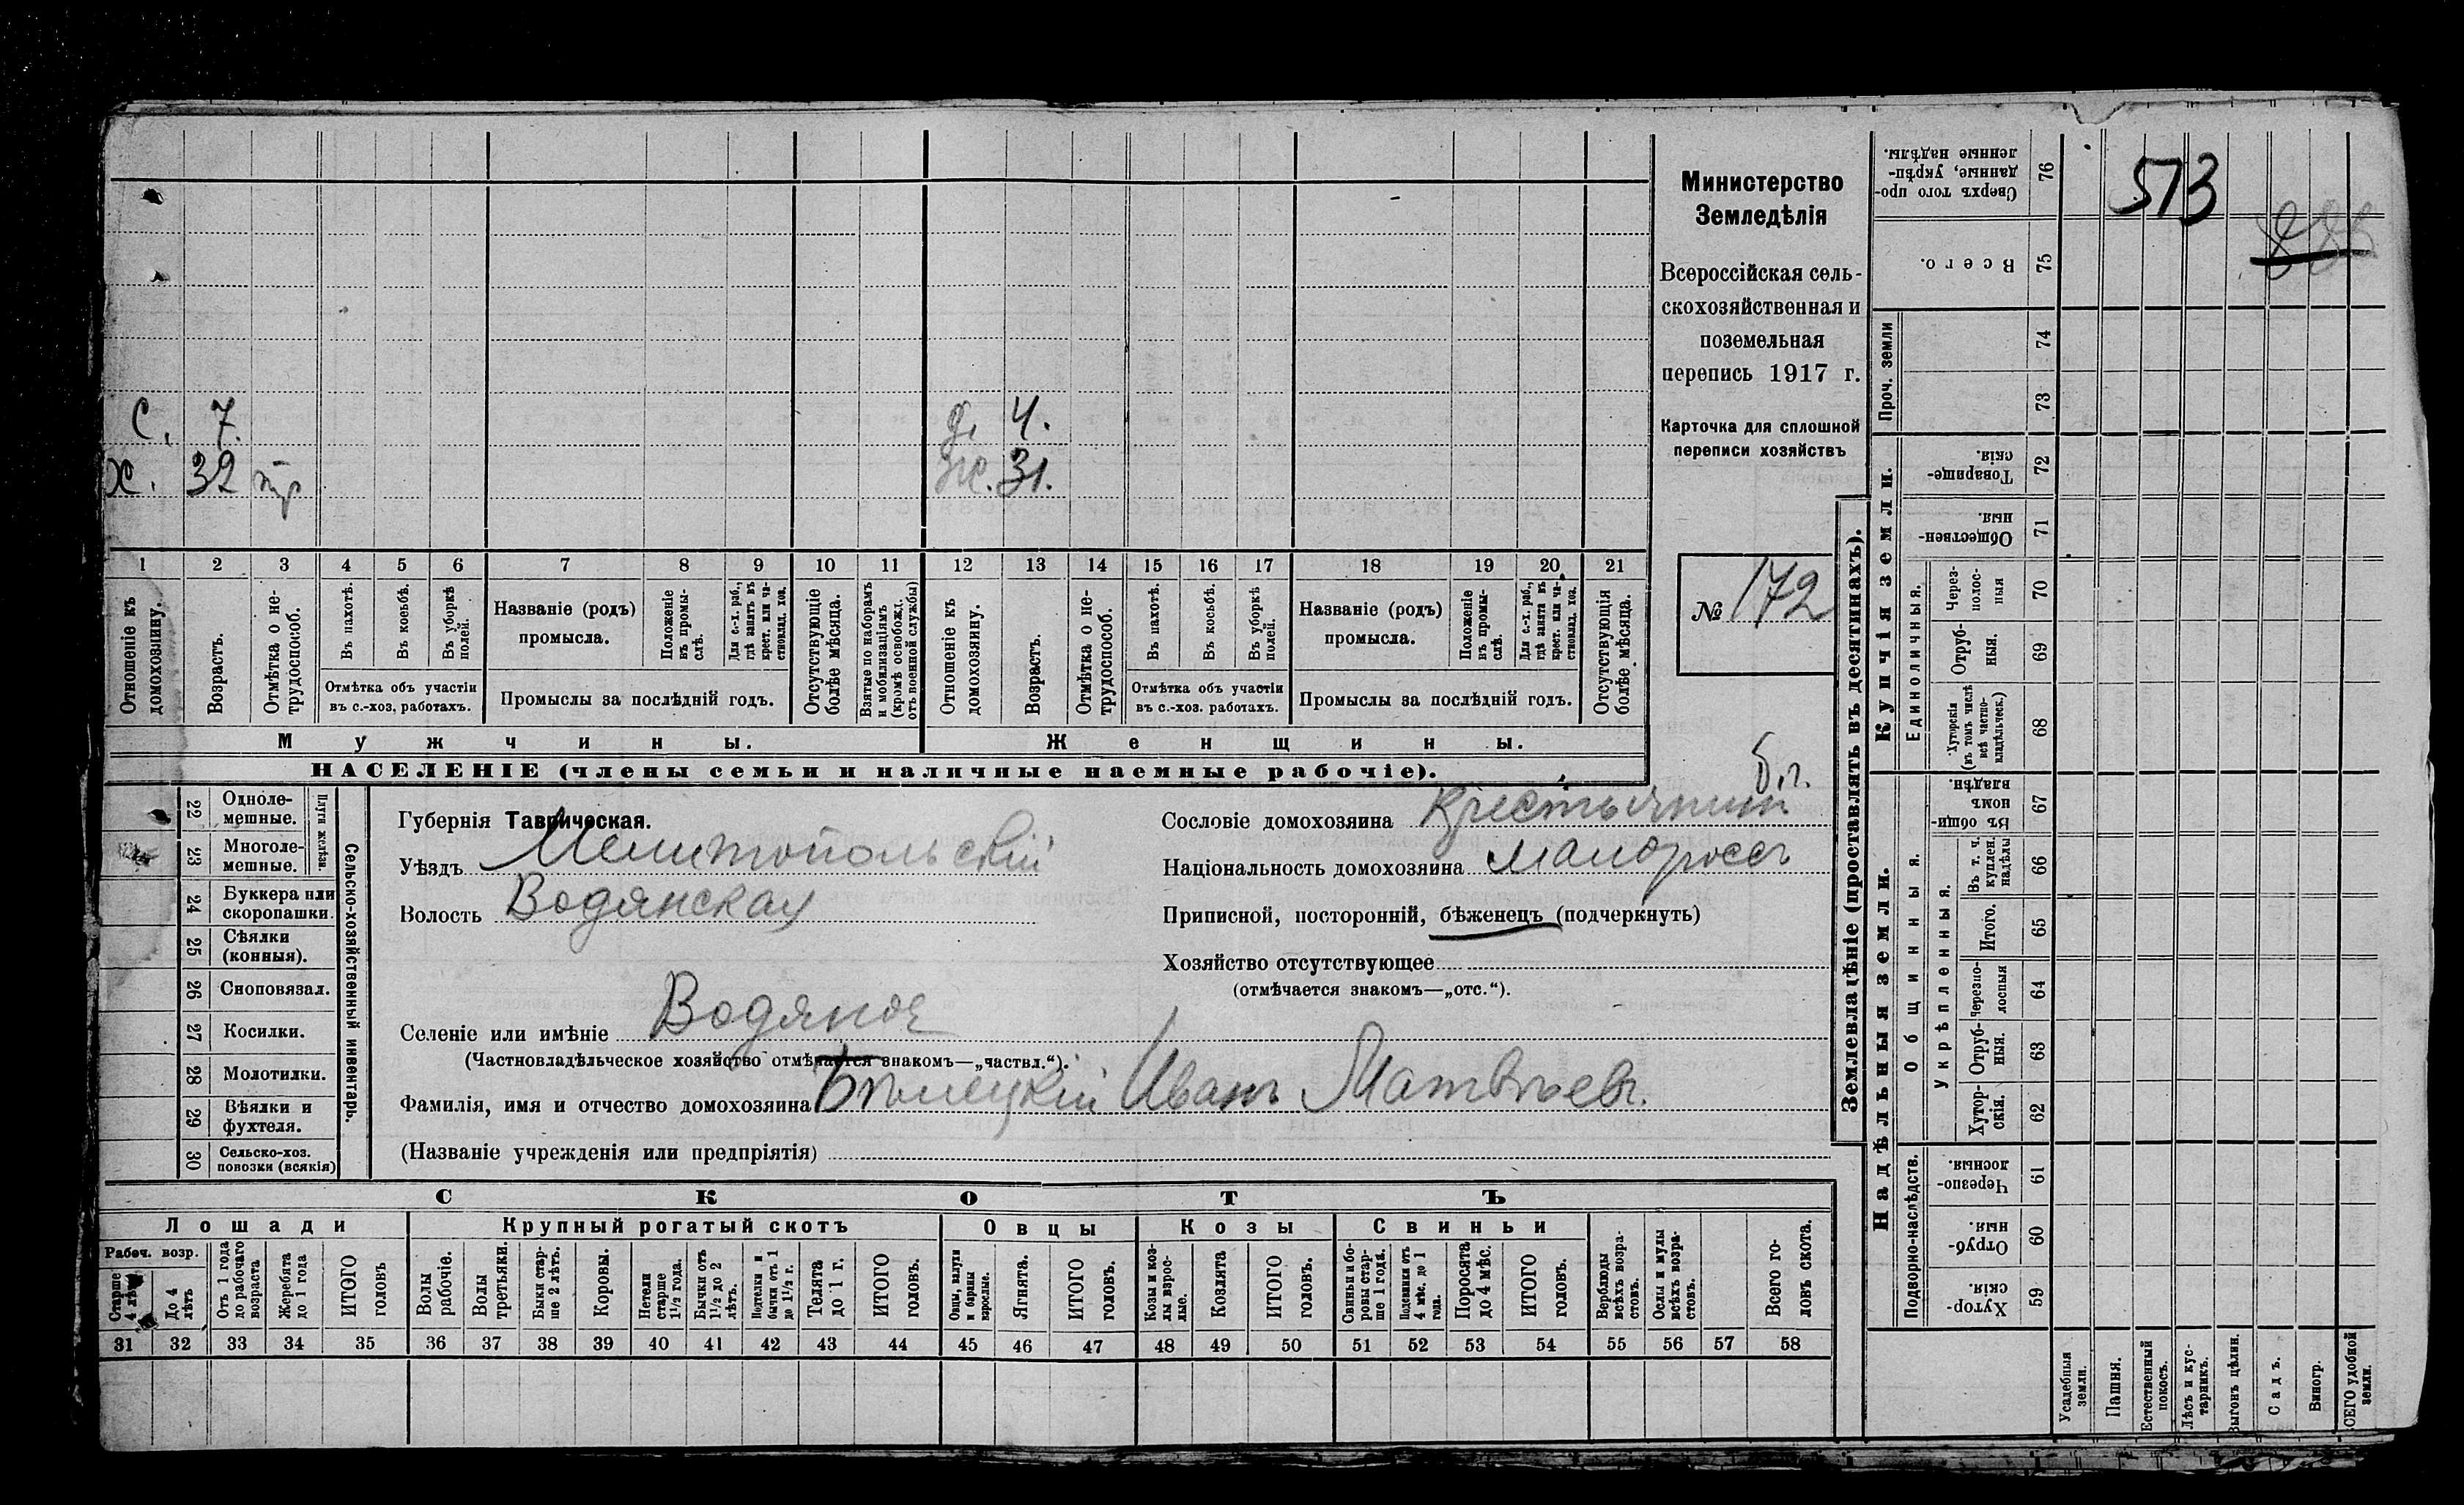 Министерство
Земледѣлія
Всероссійская сель-
скохозяйственная и
поземельная
перепись 1917 г.
Карточка для сплошной
переписи хозяйствъ
№ 172
513
С. 7. д. 4.
х. 32 тр ж. 31.
1 2 3 4 5 6 7 8 9 10 11 12 13 14 15 16 17 18 19 20 21
Отношеніе къ домохозяину.
Возрастъ.
Отмѣтка о не-трудоспособ.
Въ пахотѣ.
Въ косьбѣ.
Въ уборкѣ полей.
Отмѣтка объ участіи
въ с.-хоз. работахъ.
Названіе (родъ)
промысла.
Положеніе въ промы-слѣ.
Для с.-х. раб., гдѣ занятъ въ крест. или ча-стновлад. хоз.
Промыслы за послѣдній годъ.
Отсутствующіе болѣе мѣсяца.
Взятые по наборамъ и мобилизаціямъ (кромѣ освобожд. отъ военной службы)
Отношеніе къ домохозяину.
Возрастъ.
Отмѣтка о не-трудоспособ.
Въ пахотѣ.
Въ косьбѣ.
Въ уборкѣ полей.
Отмѣтка объ участіи
въ с.-хоз. работахъ.
Названіе (родъ)
промысла.
Положеніе въ промы-слѣ.
Для с.-х. раб., гдѣ занята въ крест. или ча-стновлад. хоз.
Промыслы за послѣдній годъ.
Отсутствующія болѣе мѣсяца.
Мужчины. Женщины.
НАСЕЛЕНІЕ (члены семьи и наличные наемные рабочіе).
22 Одноле-
мешные.
23 Многоле-
мешные.
Плуги желѣзн.
24 Буккера или
скоропашки.
25 Сѣялки
(конныя).
26 Сноповязал.
27 Косилки.
28 Молотилки.
29 Вѣялки и
фухтеля.
30 Сельско-хоз.
повозки (всякія)
Сельско-хозяйственный инвентарь.
Губернія Таврическая.
Уѣздъ Мелитопольскій
Волость Водянская
Селеніе или имѣніе Водяное
(Частновладѣльческое хозяйство отмѣчается знакомъ—„частвл.“).
Фамилія, имя и отчество домохозяина Бѣлецкій Иванъ Матвѣевъ.
(Названіе учрежденія или предпріятія)
б.г.
Сословіе домохозяина Крестьянин
Національность домохозяина малороссъ
Приписной, посторонній, бѣженецъ (подчеркнуть)
Хозяйство отсутствующее
(отмѣчается знакомъ—„отс.“).
СКОТЪ
Лошади Крупный рогатый скотъ Овцы Козы Свиньи
Рабоч. возр.
Старше 4 лѣтъ
До 4 лѣтъ
Отъ 1 года до рабочаго возраста
Жеребята до 1 года
ИТОГО головъ
Волы рабочіе.
Волы третьяки.
Быки стар-ше 2 лѣтъ.
Коровы.
Нетели старше 1½ года.
Бычки отъ 1½ до 2 лѣтъ.
Подтелки и бычки отъ 1 до 1½ г.
Телята до 1 г.
ИТОГО головъ.
Овцы, валухи и бараны взрослые.
Ягнята.
ИТОГО головъ.
Козы и коз-лы взрос-лые.
Козлята
ИТОГО головъ.
Свиньи и бо-ровы стар-ше 1 года.
Подсвинки отъ 4 мѣс. до 1 года.
Поросята до 4 мѣс.
ИТОГО головъ.
Верблюды всѣхъ возра-стовъ.
Ослы и мулы всѣхъ возра-стовъ.
Всего го-ловъ скота.
31 32 33 34 35 36 37 38 39 40 41 42 43 44 45 46 47 48 49 50 51 52 53 54 55 56 57 58
Землевладѣніе (проставлять въ десятинахъ).
Сверхъ того про-данные, укрѣп-ленные надѣлы. 76
Всего. 75
Проч. земли
74
73
Купчія земли.
Товарище-скія. 72
Обществен-ныя. 71
Единоличныя.
Через-полос-ныя 70
Отруб-ныя. 69
Хуторскія (въ томъ числѣ всѣ частно-владѣльческ.) 68
Надѣльныя земли.
Общинныя.
Въ общин-номъ владѣн. 67
Укрѣпленныя.
Въ т. ч. куплен. надѣлы 66
Итого. 65
Черезпо-лосныя 64
Отруб-ныя. 63
Хутор-скія. 62
Подворно-наслѣдств.
Черезпо-лосныя. 61
Отруб-ныя. 60
Хутор-скія. 59
Усадебныя земли.
Пашня.
Естественный покосъ.
Лѣсъ и кус-тарникъ.
Выгонъ цѣлин.
Садъ.
Виногр.
ВСЕГО удобной земли.